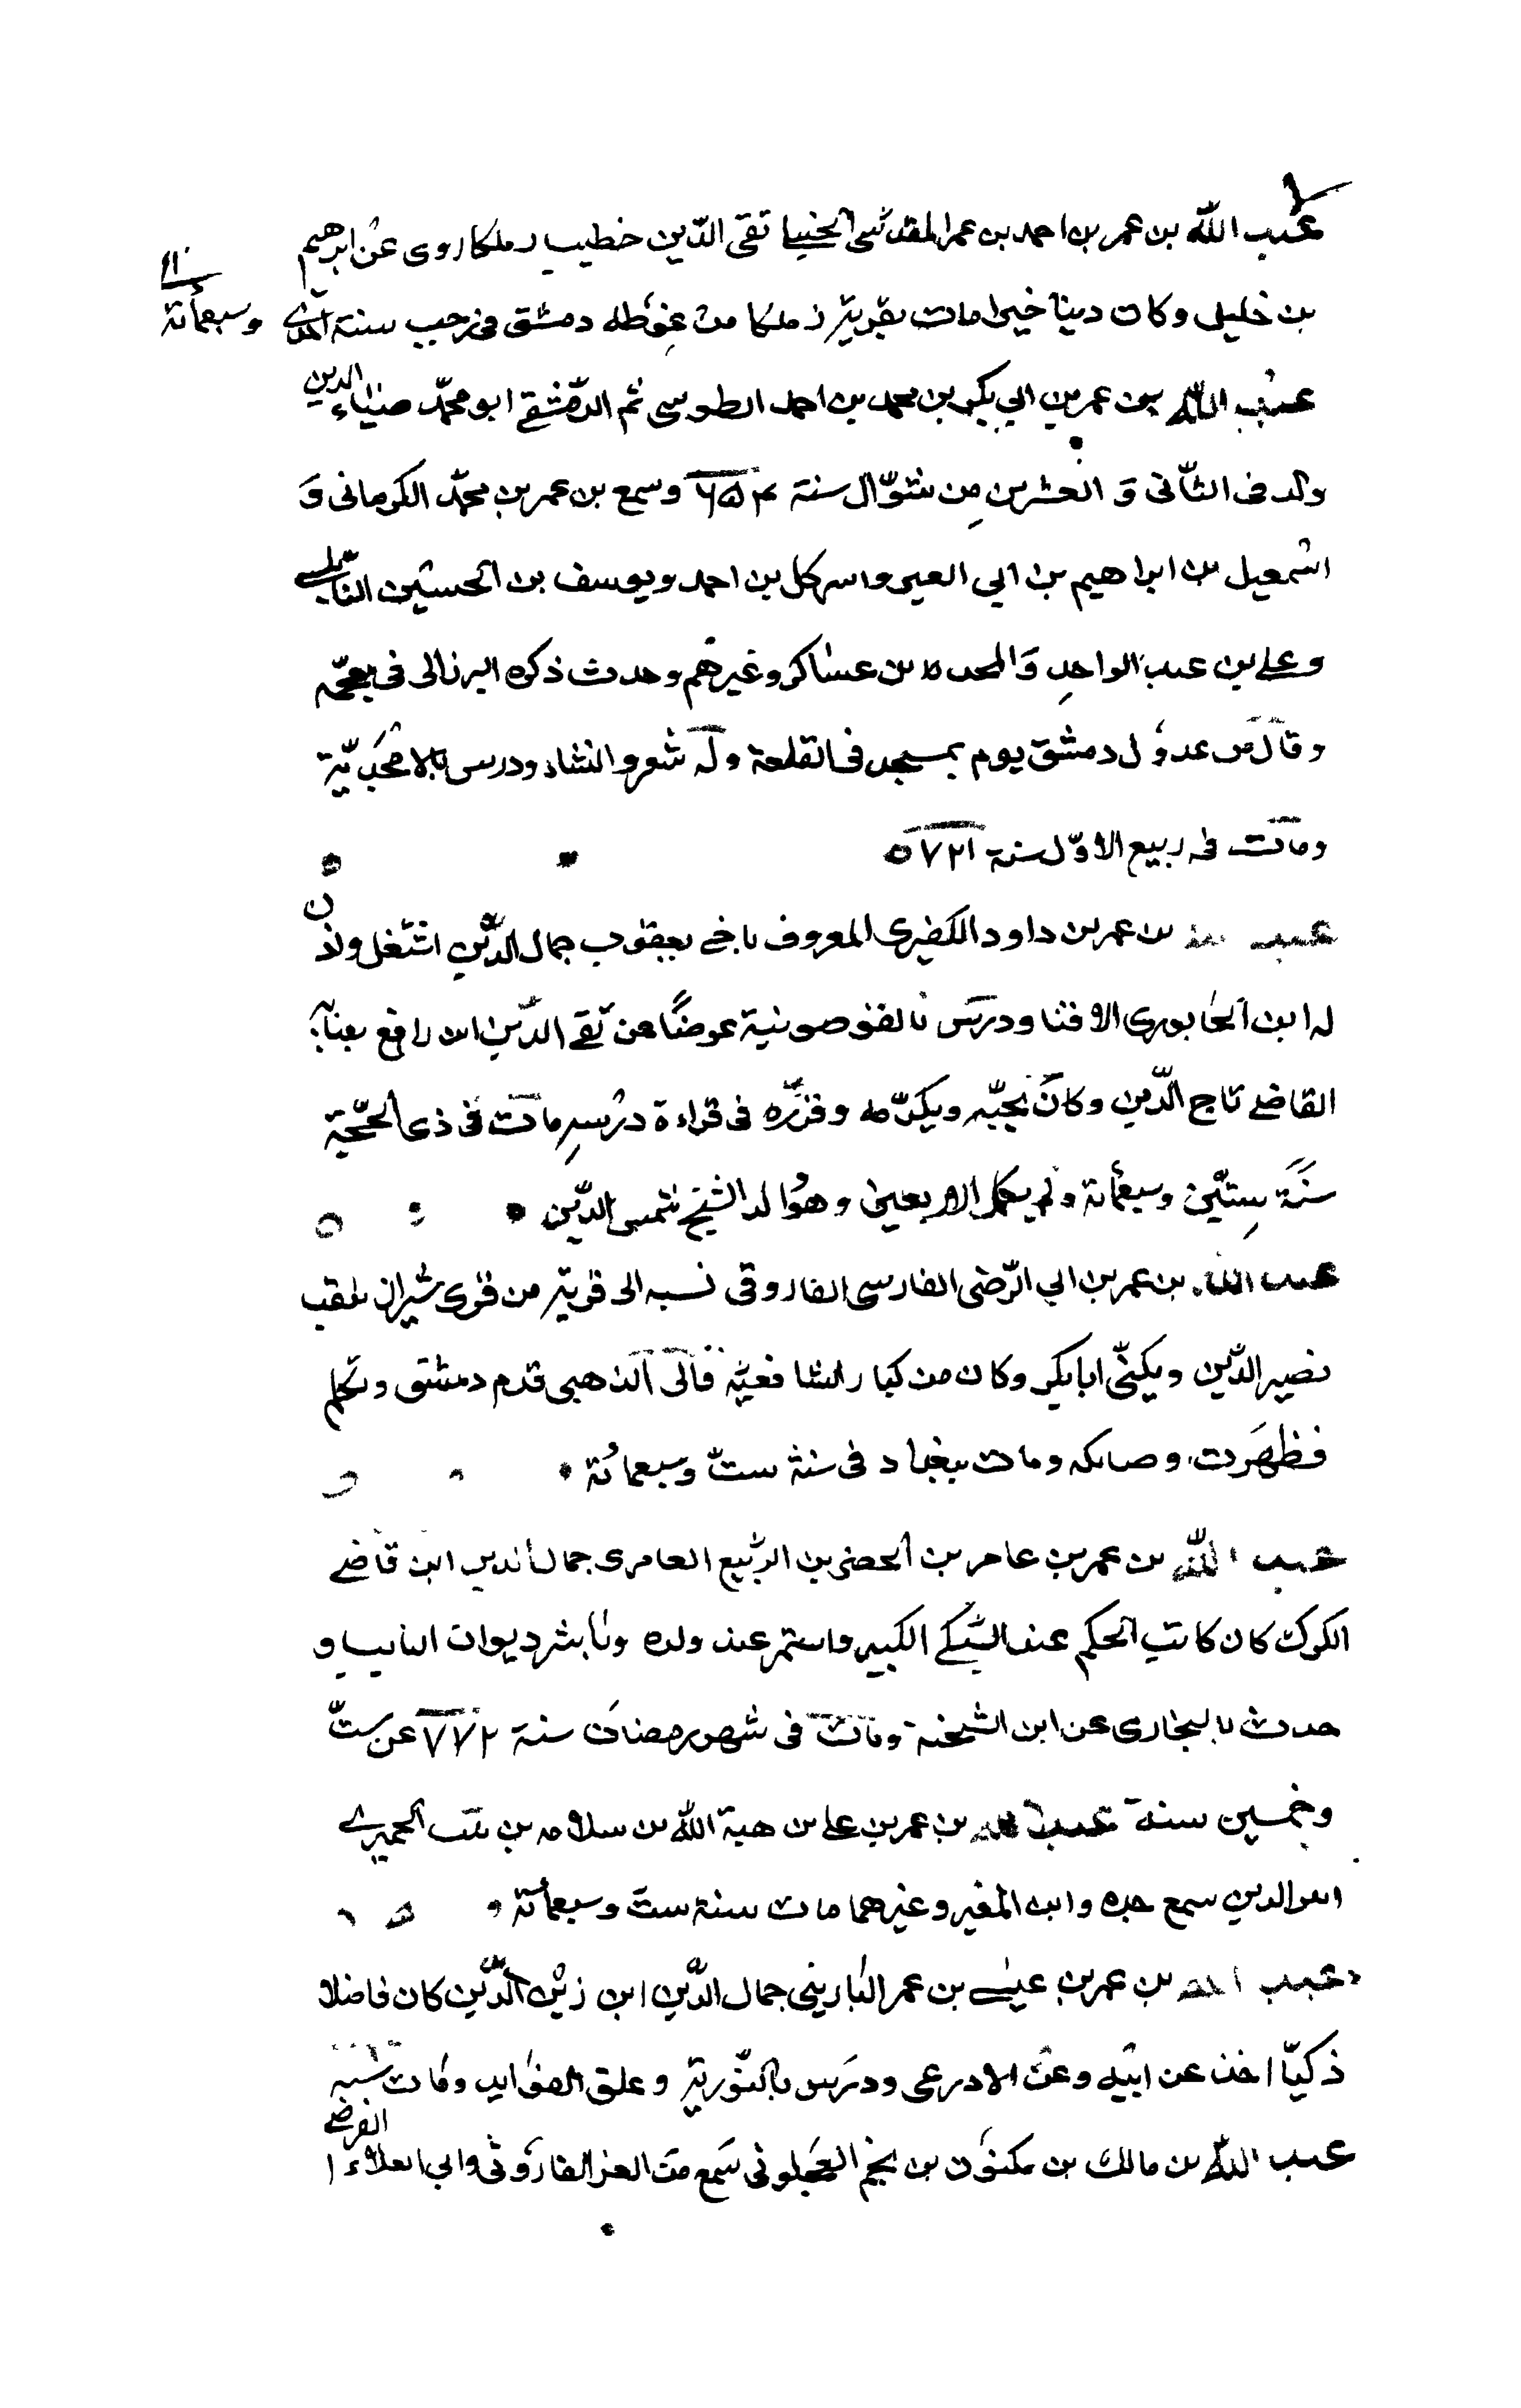 عبد الله بن عمر بن احمد بن عمر المقدسي الحنبلي تقى الدّين خطيب زملكا روى عن ابرهيم
بن خليل وكان دينا خيرا مات بقرية زملكا من غوطه دمشق فى رجب سنة احدى وسبعمائة
عبد الله بن عمر بن ابي بكر بن محمد بن احمد الطوسى ثم الدّمشقي ابو محمّد ضياء الدين
ولد فى الثّانى وَ العشرين مِن شوّال سنة ٦٥٤ وسمع بن عمر بن محمّد الكرمانى وَ
اسمعيل بن ابراهيم بن ابي اليسر بن احمد ويوسف بن الحسين النابلسي
وعلى بن عبد الواحدِ وَ بن عساكر وغيرهم وحدث ذكره البرزالى فى معجمه
وقال من عدول دمشق يوم بمسجد فى القلعة وله شعر وانشاد ودرس بالامجديّة
ومات فى ربيع الاوّل سنة ٧٢١
عبد الله بن عمر بن داود الكفيرى المعروف باخي يعقوب جمال الدّين اشتغل واذن
له ابن الخابورى الافتا ودرسَ بالفوصونية عوضًا عن تقى الدّين ابن رافع بعناية
القاضي تاج الدّين وكان يحبّه ويكرّمه وقرّره فى قراءة درسهِ مات فى ذى الحجّة
سنَة ستّين وسبعمائة ولم يكمل الاربعين وهو والد الشيخ شمس الدّين
عبد الله بن عمر بن ابي الرّضى الفارسى الفاروقى نسبه الى قرية من قرى شيراز يلقب
نصير الدّين ويكنّى ابا بكر وكان من كبار الشافعيّة قال الذهبى قدم دمشق وتكلم
فظهَرت فضائله ومات ببغداد فى سنة ستّ وسبعمائة
عبد الله بن عمر بن عامر بن الخضر بن الربيع العامرى جمال الدين ابن قاضي
الكرك كان كاتب الحكم عند السّبكي الكبير واستمر عند ولده وباشر ديوان النايب و
حدث بالبخارى عن ابن الشحنة ومات فى شهر رمضان سنة ٧٧٢ عن ستّ
وخمسين سنة عبد الله بن عمر بن على بن هبة الله بن سلامه بن الحميري
الدين سمع جده وابن المقير وغيرهما مات سنة ستّ وسبعمائة
عبد الله بن عمر بن عيسى بن عمر البارينى جمال الدّين ابن زين الدّين كان فاضلا
ذكيّا اخذ عن ابيه وعن الاذرعى ودرّس بالنّورية وعلق الفوايد ومات سنة
عبد الله بن مالك بن مكنون بن نجم العجلونى سَمع من العز الفاروثى وابي العلاء الفرضي